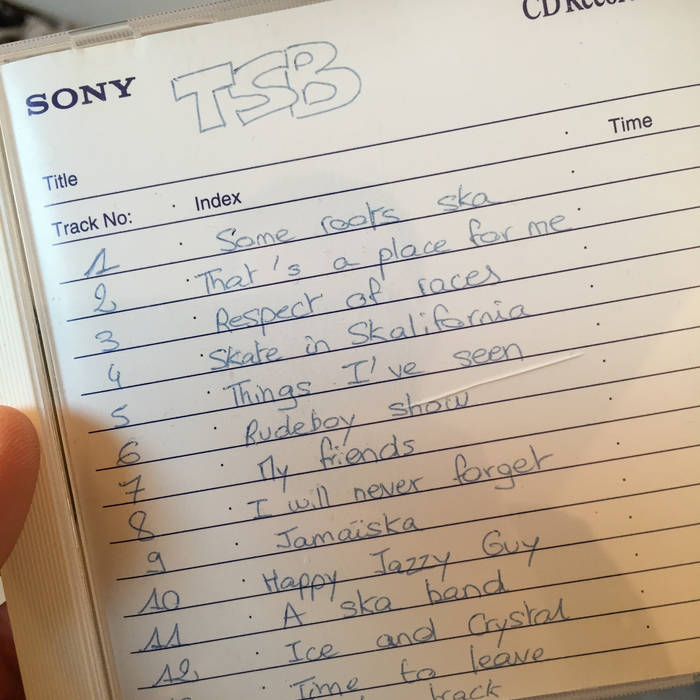 CD Reco
SONY TSB
Title
Track No: Index Time
1 Some roots ska
2 That's a place for me
3 Respect of races
4 Skate in Skalifornia
5 Things I've seen
6 Rudeboy show
7 My friends
8 I will never forget
9 Jamaïska
10 Happy Jazzy Guy
11 A ska band
12 Ice and Crystal
Time to leave
track